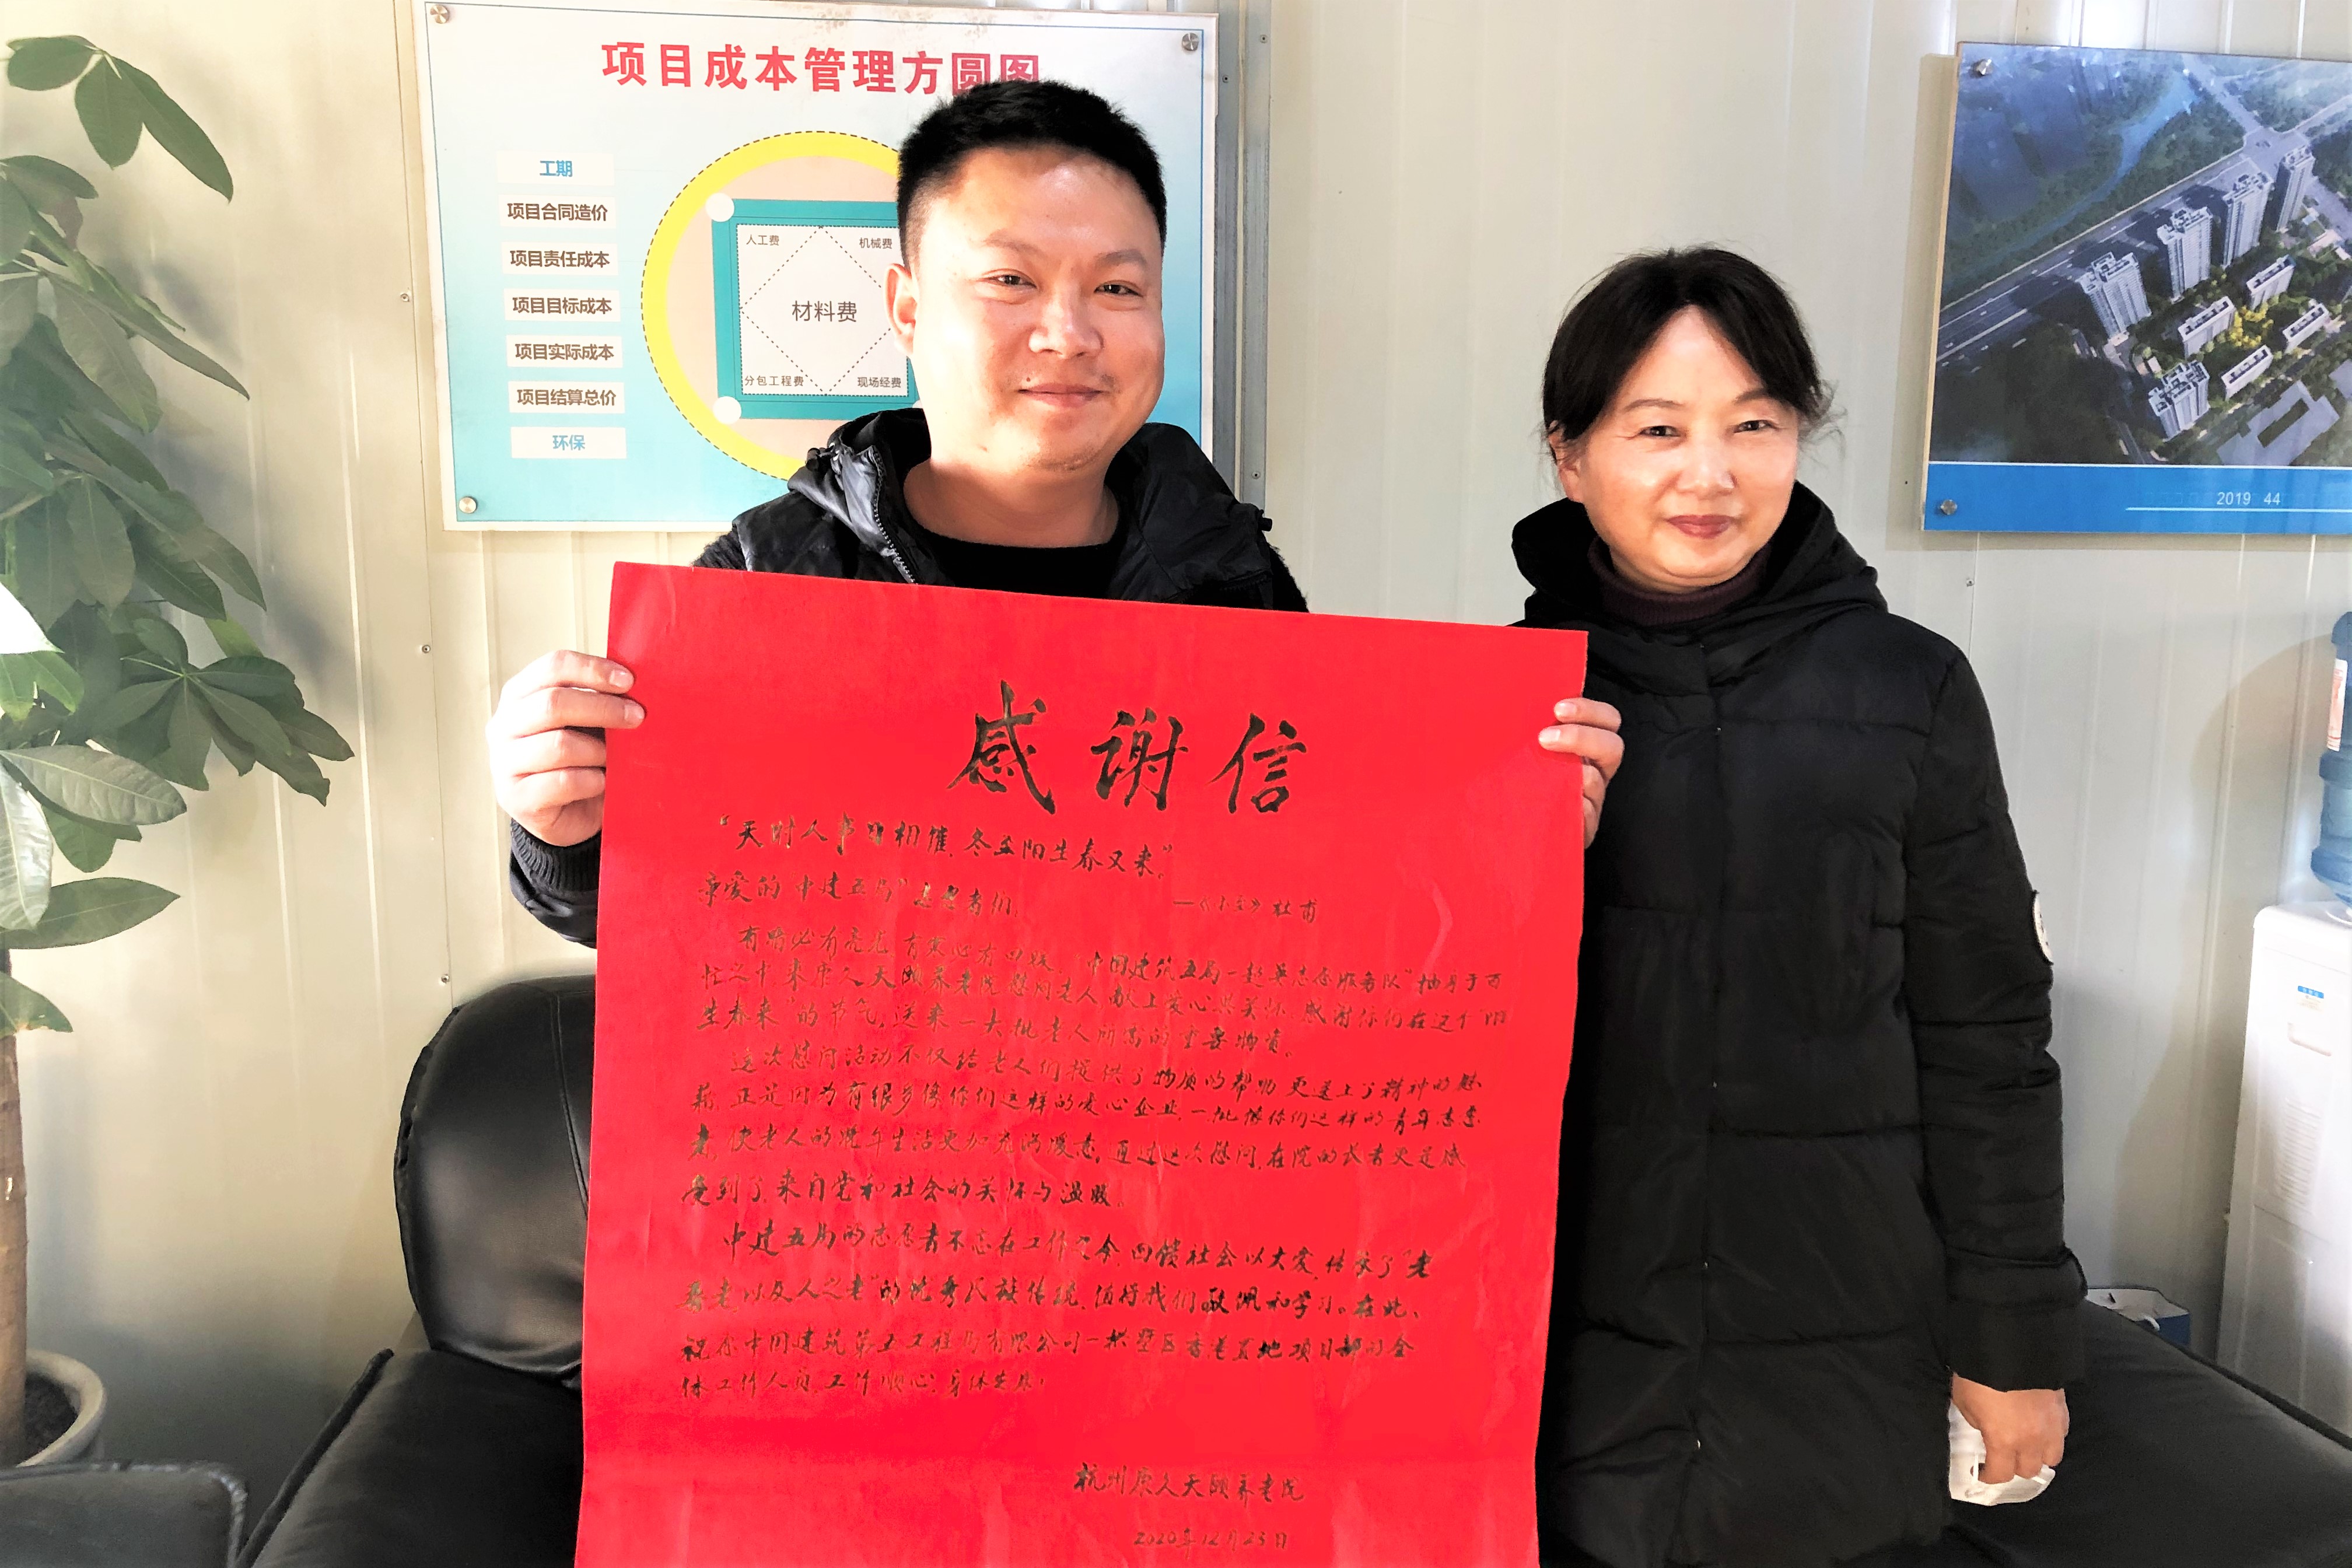 项目成本管理方圆图
工期
项目合同造价
项目责任成本
项目目标成本
项目实际成本
项目结算总价
环保
人工费
机械费
材料费
分包工程费
现场经费
2019 44
感谢信
“天时人事日相催,冬至阳生春又来。”
——《小至》杜甫
亲爱的“中建五局”志愿者们:
有暗必有亮光,有寒必有回暖,“中国建筑五局—超英志愿服务队”抽身于百
忙之中,来康久天颐养老院慰问老人,献上爱心与关怀,感谢你们在这个“阳
生春来”的节气,送来一大批老人所需的重要物资。
这次慰问活动不仅给老人们提供了物质的帮助,更送上了精神的慰
藉,正是因为有很多像你们这样的爱心企业,一批像你们这样的青年志愿
者,使老人的晚年生活更加充满暖意,通过这次慰问,在院的长者更是感
受到了来自党和社会的关怀与温暖。
中建五局的志愿者不忘在工作之余,回馈社会以大爱,传承了“老
吾老以及人之老”的优秀民族传统,值得我们敬佩和学习。在此,
祝愿中国建筑第五工程局有限公司—拱墅区香港置地项目部的全
体工作人员,工作顺心,身体安康!
杭州康久天颐养老院
2020年12月23日